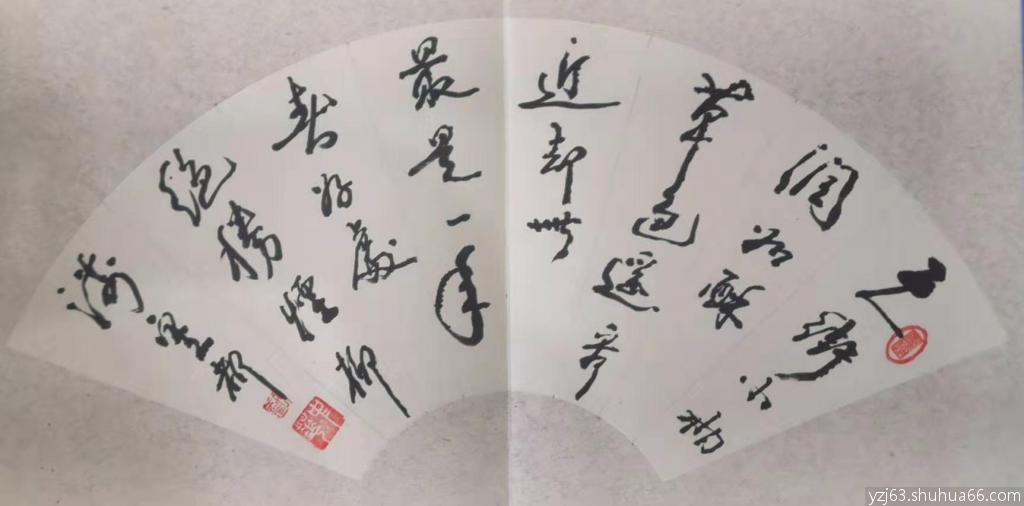 天街小雨
润如酥
草色遥看
近却無
最是一年
春好處
绝勝煙柳
满皇都
yzj63.shuhua66.com